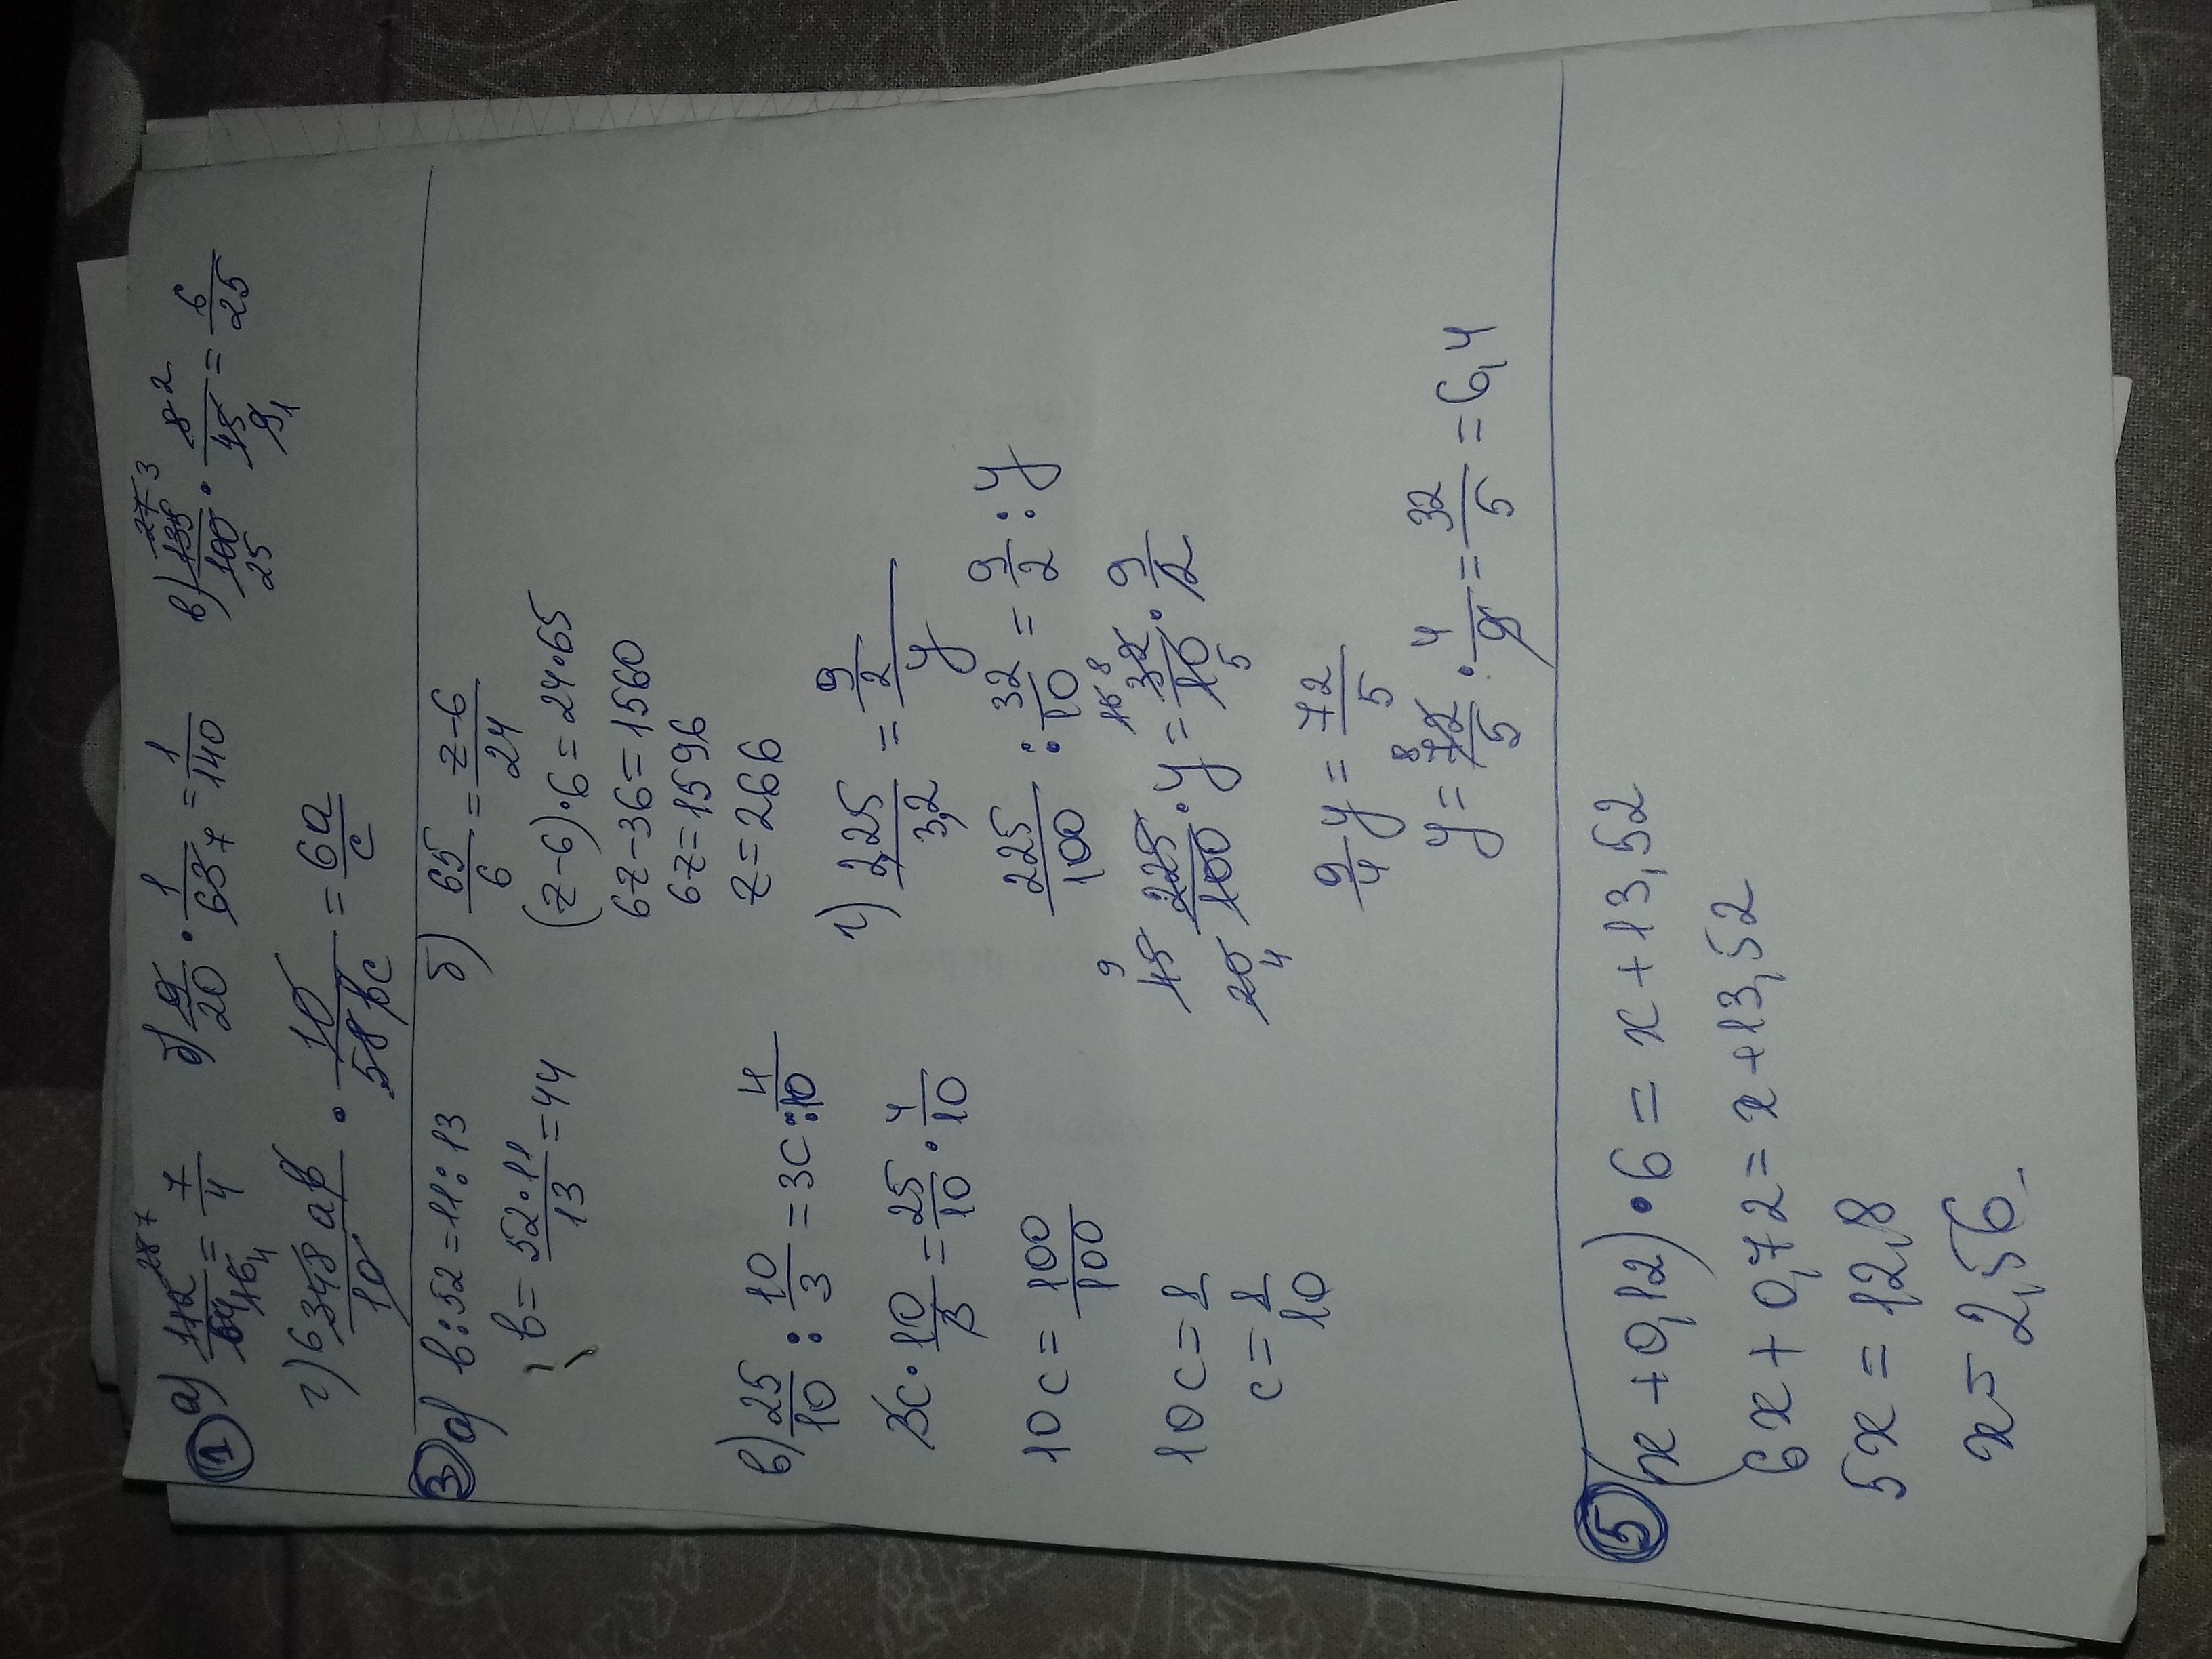 1 а) 112/64 28 7 16 4 = 7/4 б) 9/20 · 1/63 7 = 1/140 в) 135/100 27 3 25 · 8/45 2 9 1 = 6/25
г) 6 348ав/10 · 10/58вс = 6а/с
3 а) в:52=11:13
в= 52·11/13 =44
б) 65/6 = z-6/24
(z-6)·6=24·65
6z-36=1560
6z=1596
z=266
в) 25/10 : 10/3 = 3с : 4/10
3с · 10/3 = 25/10 · 4/10
10с = 100/100
10с=1
с= 1/10
г) 2,25/3,2 = 9/2/y
225/100 : 32/10 = 9/2 : y
9 45 225/100 20 4 · y = 16 8 32/10 5 · 9/2
9/4 y = 72/5
y = 8 72/5 · 4/9 = 32/5 = 6,4
5 (x+0,12)·6=x+13,52
6x+0,72=x+13,52
5x=12,8
x=2,56.